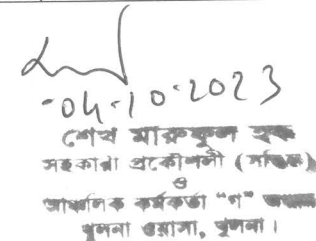 04-10-2023
শেখ মারুফুল হক
সহকারী প্রকৌশলী (
ও
আঞ্চলিক কর্মকর্তা "গ"
খুলনা ওয়াসা, খুলনা।